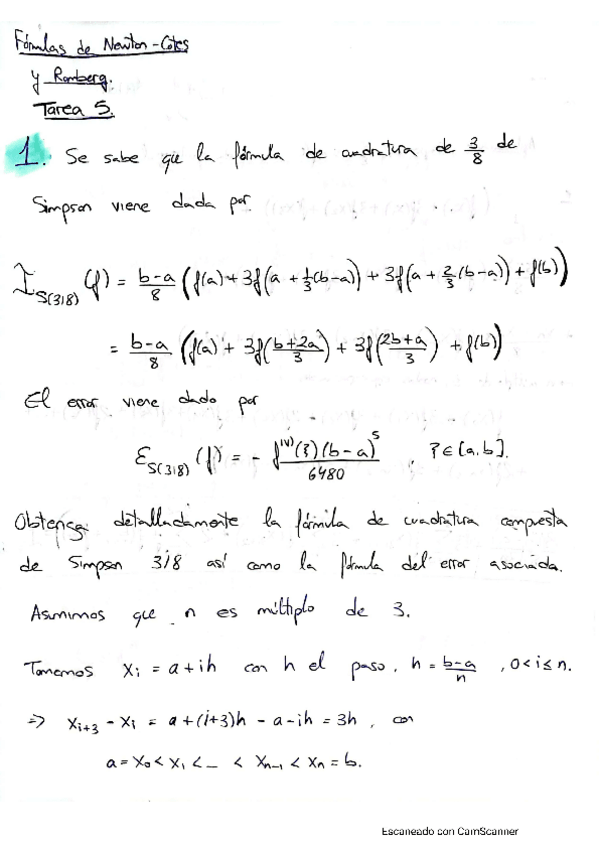 Fórmulas de Newton-Cotes
y Romberg.
Tarea 5.
1. Se sabe que la fórmula de cuadratura de 3/8 de
Simpson viene dada por
I_{S(3/8)}(f) = \frac{b-a}{8} (f(a) + 3f(a + \frac{1}{3}(b-a)) + 3f(a + \frac{2}{3}(b-a)) + f(b))
= \frac{b-a}{8} (f(a) + 3f(\frac{b+2a}{3}) + 3f(\frac{2b+a}{3}) + f(b))
El error viene dado por
ε_{S(3/8)}(f) = - \frac{f^{IV)}(ξ)(b-a)^5}{6480}, ξ∈[a,b].
Obtenga detalladamente la fórmula de cuadratura compuesta
de Simpson 3/8 así como la fórmula del error asociada.
Asumimos que n es múltiplo de 3.
Tomemos x_i = a + ih con h el paso, h = \frac{b-a}{n}, 0<i≤n.
⇒ x_{i+3} - x_i = a + (i+3)h - a - ih = 3h, con
a = x_0 < x_1 < _ < x_{n-1} < x_n = b.
Escaneado con CamScanner